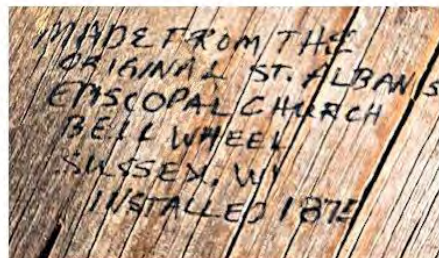 MADE FROM THE
ORIGINAL ST. ALBANS
EPISCOPAL CHURCH
BELL WHEEL
SUSSEX, WI
INSTALLED 1875